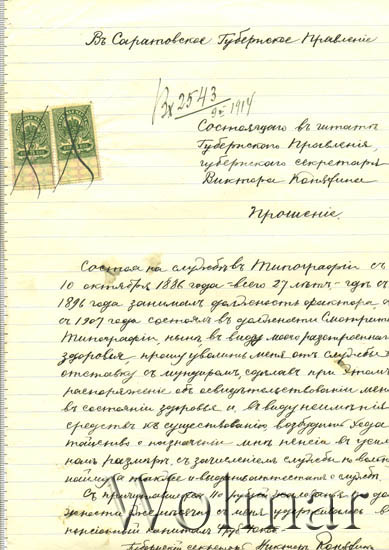 Въ Саратовское Губернское Правленіе
Вх 2543
9/II 1914
Состоящаго въ штатѣ
Губернскаго Правленія,
губернскаго секретаря
Виктора
Прошеніе.
Состоя на службѣ въ Типографіи съ
10 октября 1886 года – всего 27 лѣтъ – гдѣ съ
1896 года занималъ должность фактора, а
съ 1907 года состоялъ въ должности Смотрителя
Типографіи, нынѣ въ виду моего разстроеннаго
здоровья, прошу уволить меня отъ службы въ
отставку съ мундиромъ, сдѣлавъ при этомъ
распоряженіе объ освидѣтельствованіи меня
въ состояніи здоровья и, въ виду неимѣнія
средствъ къ существованію, возбудить хода
тайство о назначеніи мнѣ пенсіи въ
размѣрѣ, съ зачисленіемъ службы по вольному
найму а также и выдать аттестатъ о службѣ.
Съ причитающагося по сей должности
пенсіонный капиталъ
Губернскій секретарь Викторъ
Wolmar